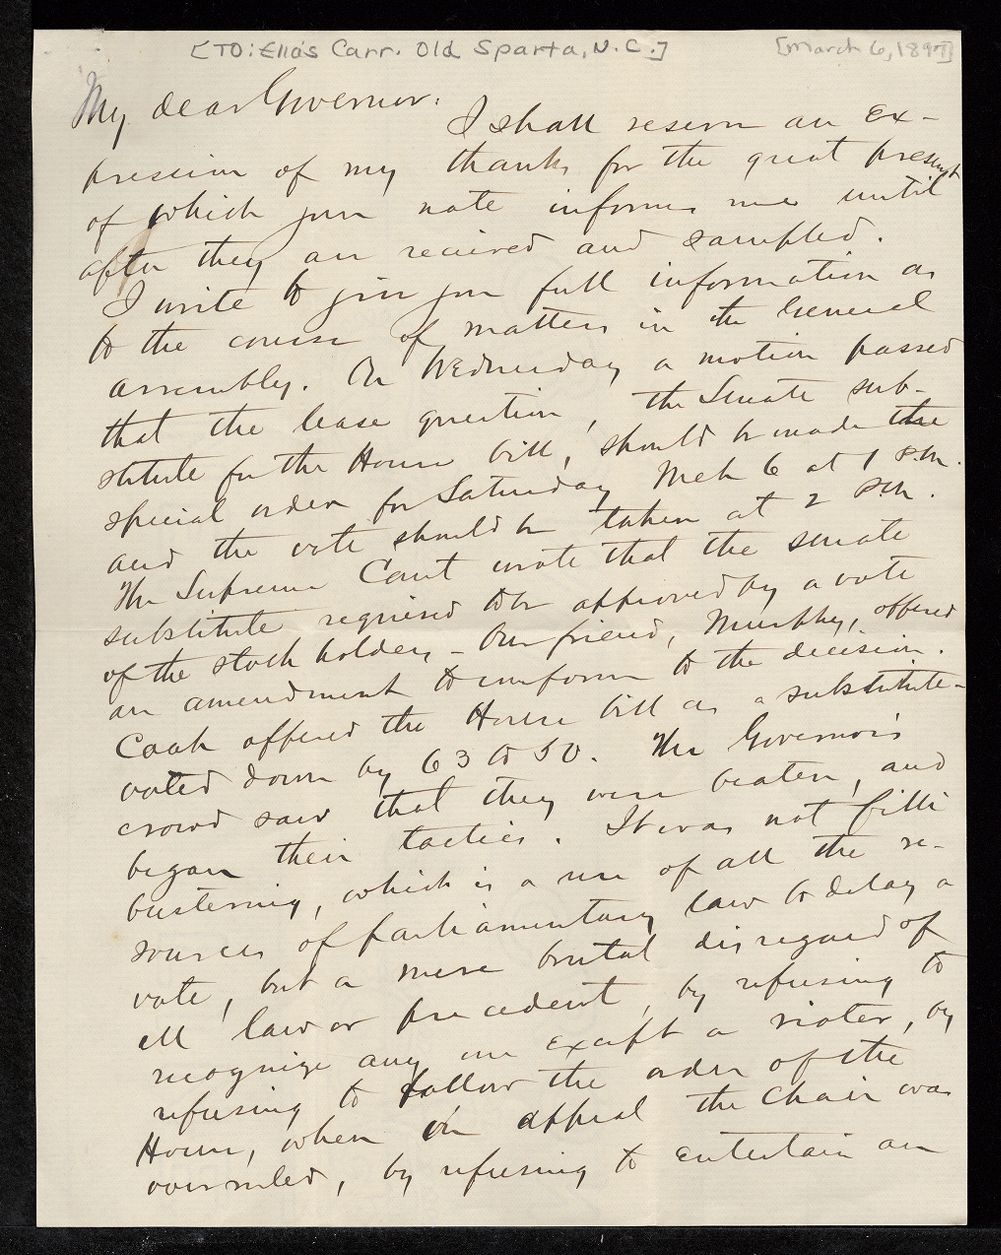 [TO: Elias Carr. Old Sparta, N.C.] [March 6, 1897]
My dear Governor.
I shall reserve an ex-
pression of my thanks for the great present
of which your note informs me until
after they are received and sampled.
I write to give you full information as
to the course of matters in the General
Assembly. On Wednesday a motion passed
that the lease question, the Senate sub-
stitute for the House bill, should be made the
special order for Saturday Mch 6 at 1 P.M.
and the vote should be taken at 2 P.M.
The Supreme Court wrote that the senate
substitute required to be approved by a vote
of the stockholders - Our friend, Murphy, offered
an amendment to conform to the decision.
Cook offered the House bill as a substitute -
voted down by 63 to 50. The Governor's
crowd saw that they were beaten, and
began their tactics. It was not filli
bustering, which is a use of all the re-
sources of parliamentary law to delay a
vote, but a mere brutal disregard of
all law or precedent, by refusing to
recognize any one except a rioter, by
refusing to follow the order of the
House, when on appeal the Chair was
overruled, by refusing to entertain an